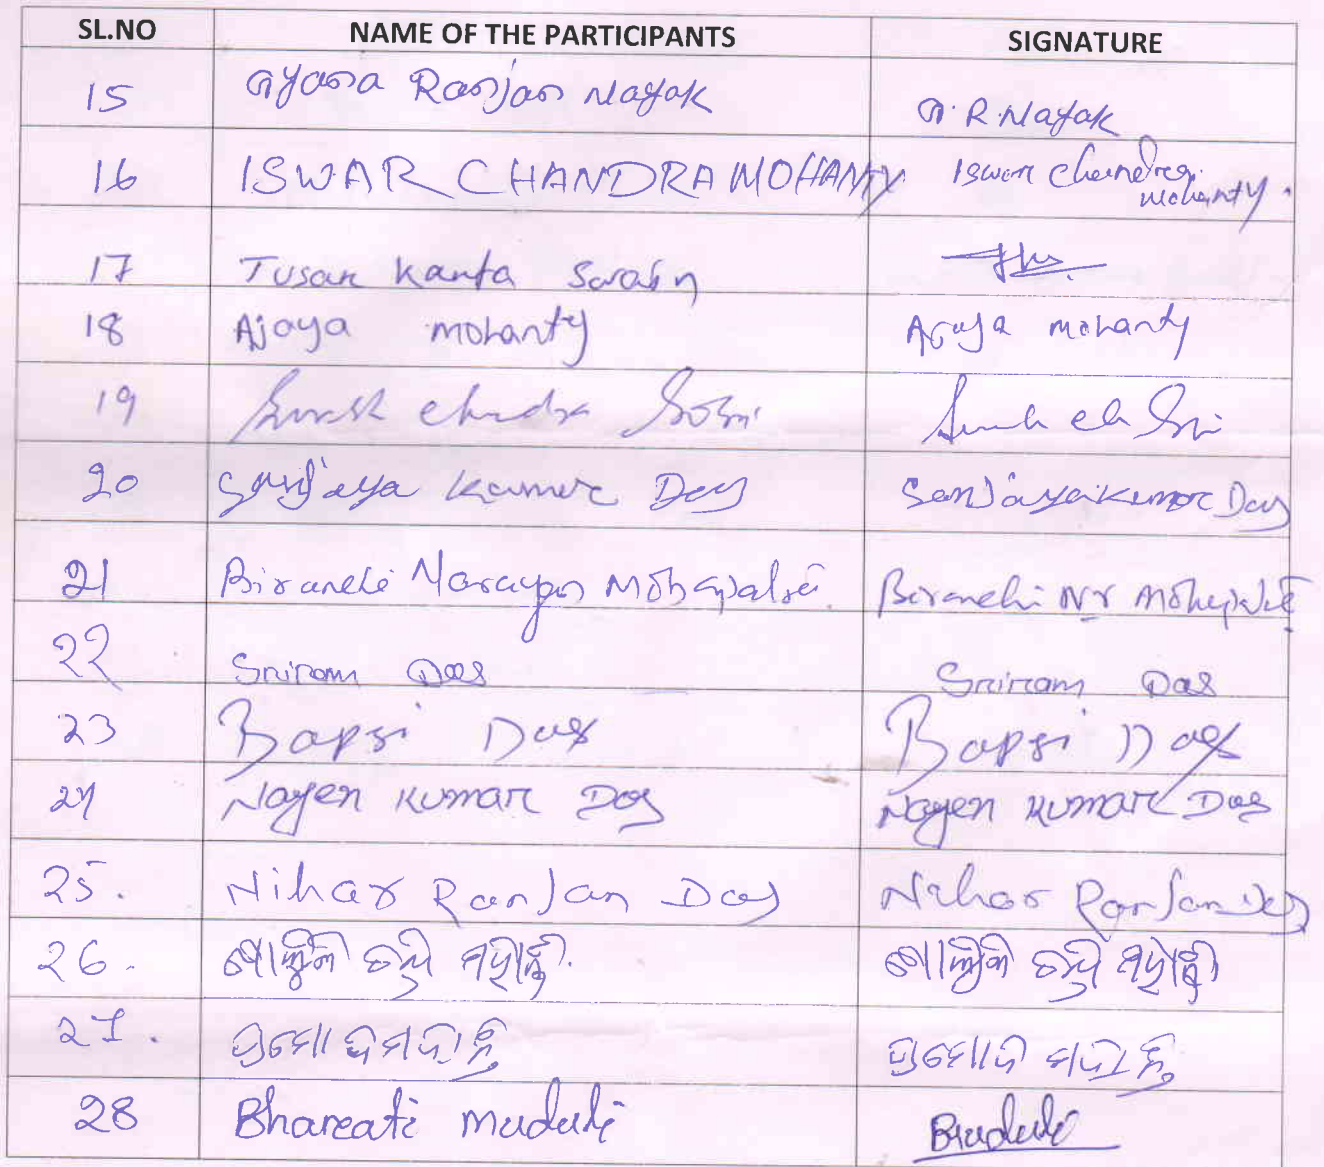 SL.NO NAME OF THE PARTICIPANTS SIGNATURE
15 Gyana Ranjan Nayak G.R.Nayak
16 ISWAR CHANDRA MOHANTY Iswar Chandra
Mohanty.
17 Tusar Kanta Swain
18 Ajaya mohanty Ajaya mohanty
19 Suresh Chandra Ch
20 Sanjaya Kumar Das Sanjaya Kumar Das
21 Biranchi Narayan Mohapatra Biranchi Nr Mohapatra
22 Sriram Das Sriram Das
23 Bapsi Das Bapsi Das
24 Nayen Kumar Das Nayen Kumar Das
25. Nihar Ranjan Das Nihar Ranjan Das
26. ମହାନ୍ତି ମହାନ୍ତି
27. ପ୍ରମୋଦ ମହାନ୍ତି ପ୍ରମୋଦ ମହାନ୍ତି
28 Bharati Muduli BMuduli